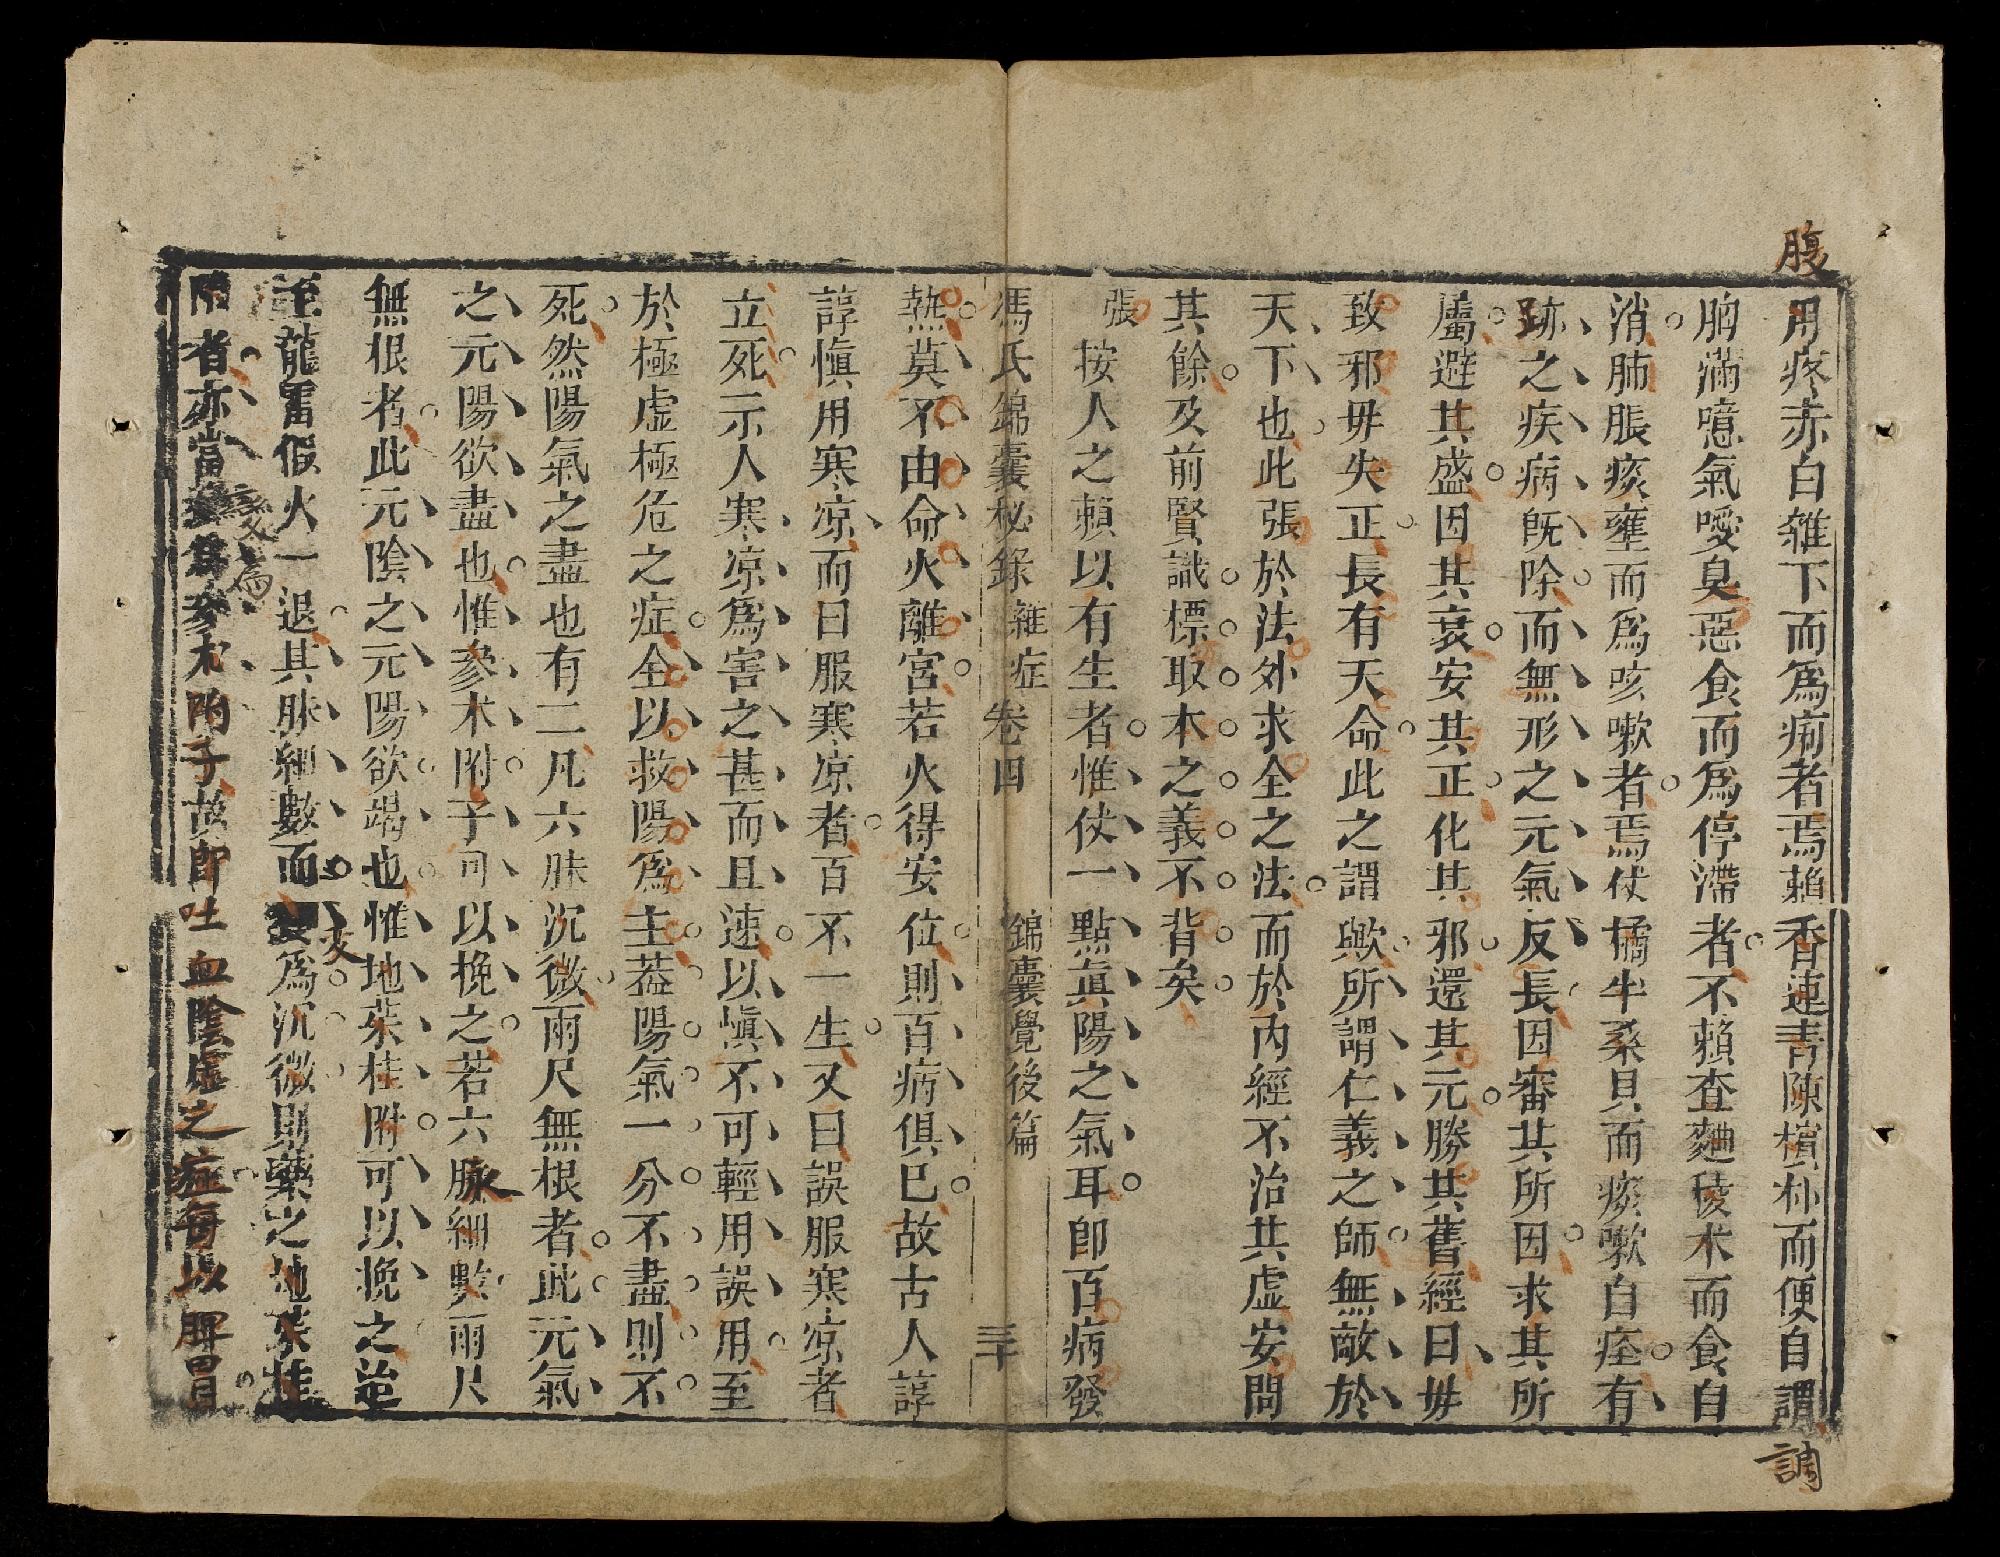 腹
用疼赤白雜下而爲痢者焉賴香連靑陳檳朴而便自調
調
胸滿噫氣噯臭惡食而爲停滯者不賴查麯稜术而食自
消肺脹痰壅而爲咳嗽者焉仗橘半桑貝而痰嗽自痊有
跡之疾病旣除而無形之元氣反長因審其所因求其所
屬避其盛因其衰安其正化其邪還其元勝其舊經曰毋
致邪毋失正長有天命此之謂歟所謂仁義之師無敵於
天下也此張於法外求全之法而於內經不治其虛安問
其餘及前賢識標取本之義不背矣
張按人之賴以有生者惟仗一點眞陽之氣耳卽百病發
馮氏錦囊秘錄 雜症 卷四 錦囊覺後篇 三十
熱莫不由命火離宮若火得安位則百病俱已故古人諄
諄愼用寒凉而曰服寒凉者百不一生又曰誤服寒凉者
立死示人寒凉爲害之甚而且速以愼不可輕用誤用至
於極虛極危之症全以救陽爲主葢陽氣一分不盡則不
死然陽氣之盡也有二凡六脉沉微兩尺無根者此元氣
之元陽欲盡也惟參术附子可以挽之若六脉細數兩尺
無根者此元陰之元陽欲竭也惟地茱桂附可以挽之迨
至龍雷假火一退其脉細數而變爲沉微則藥之地茱桂
附者亦當變爲參术附子故卽吐血陰虛之症每以脾胃